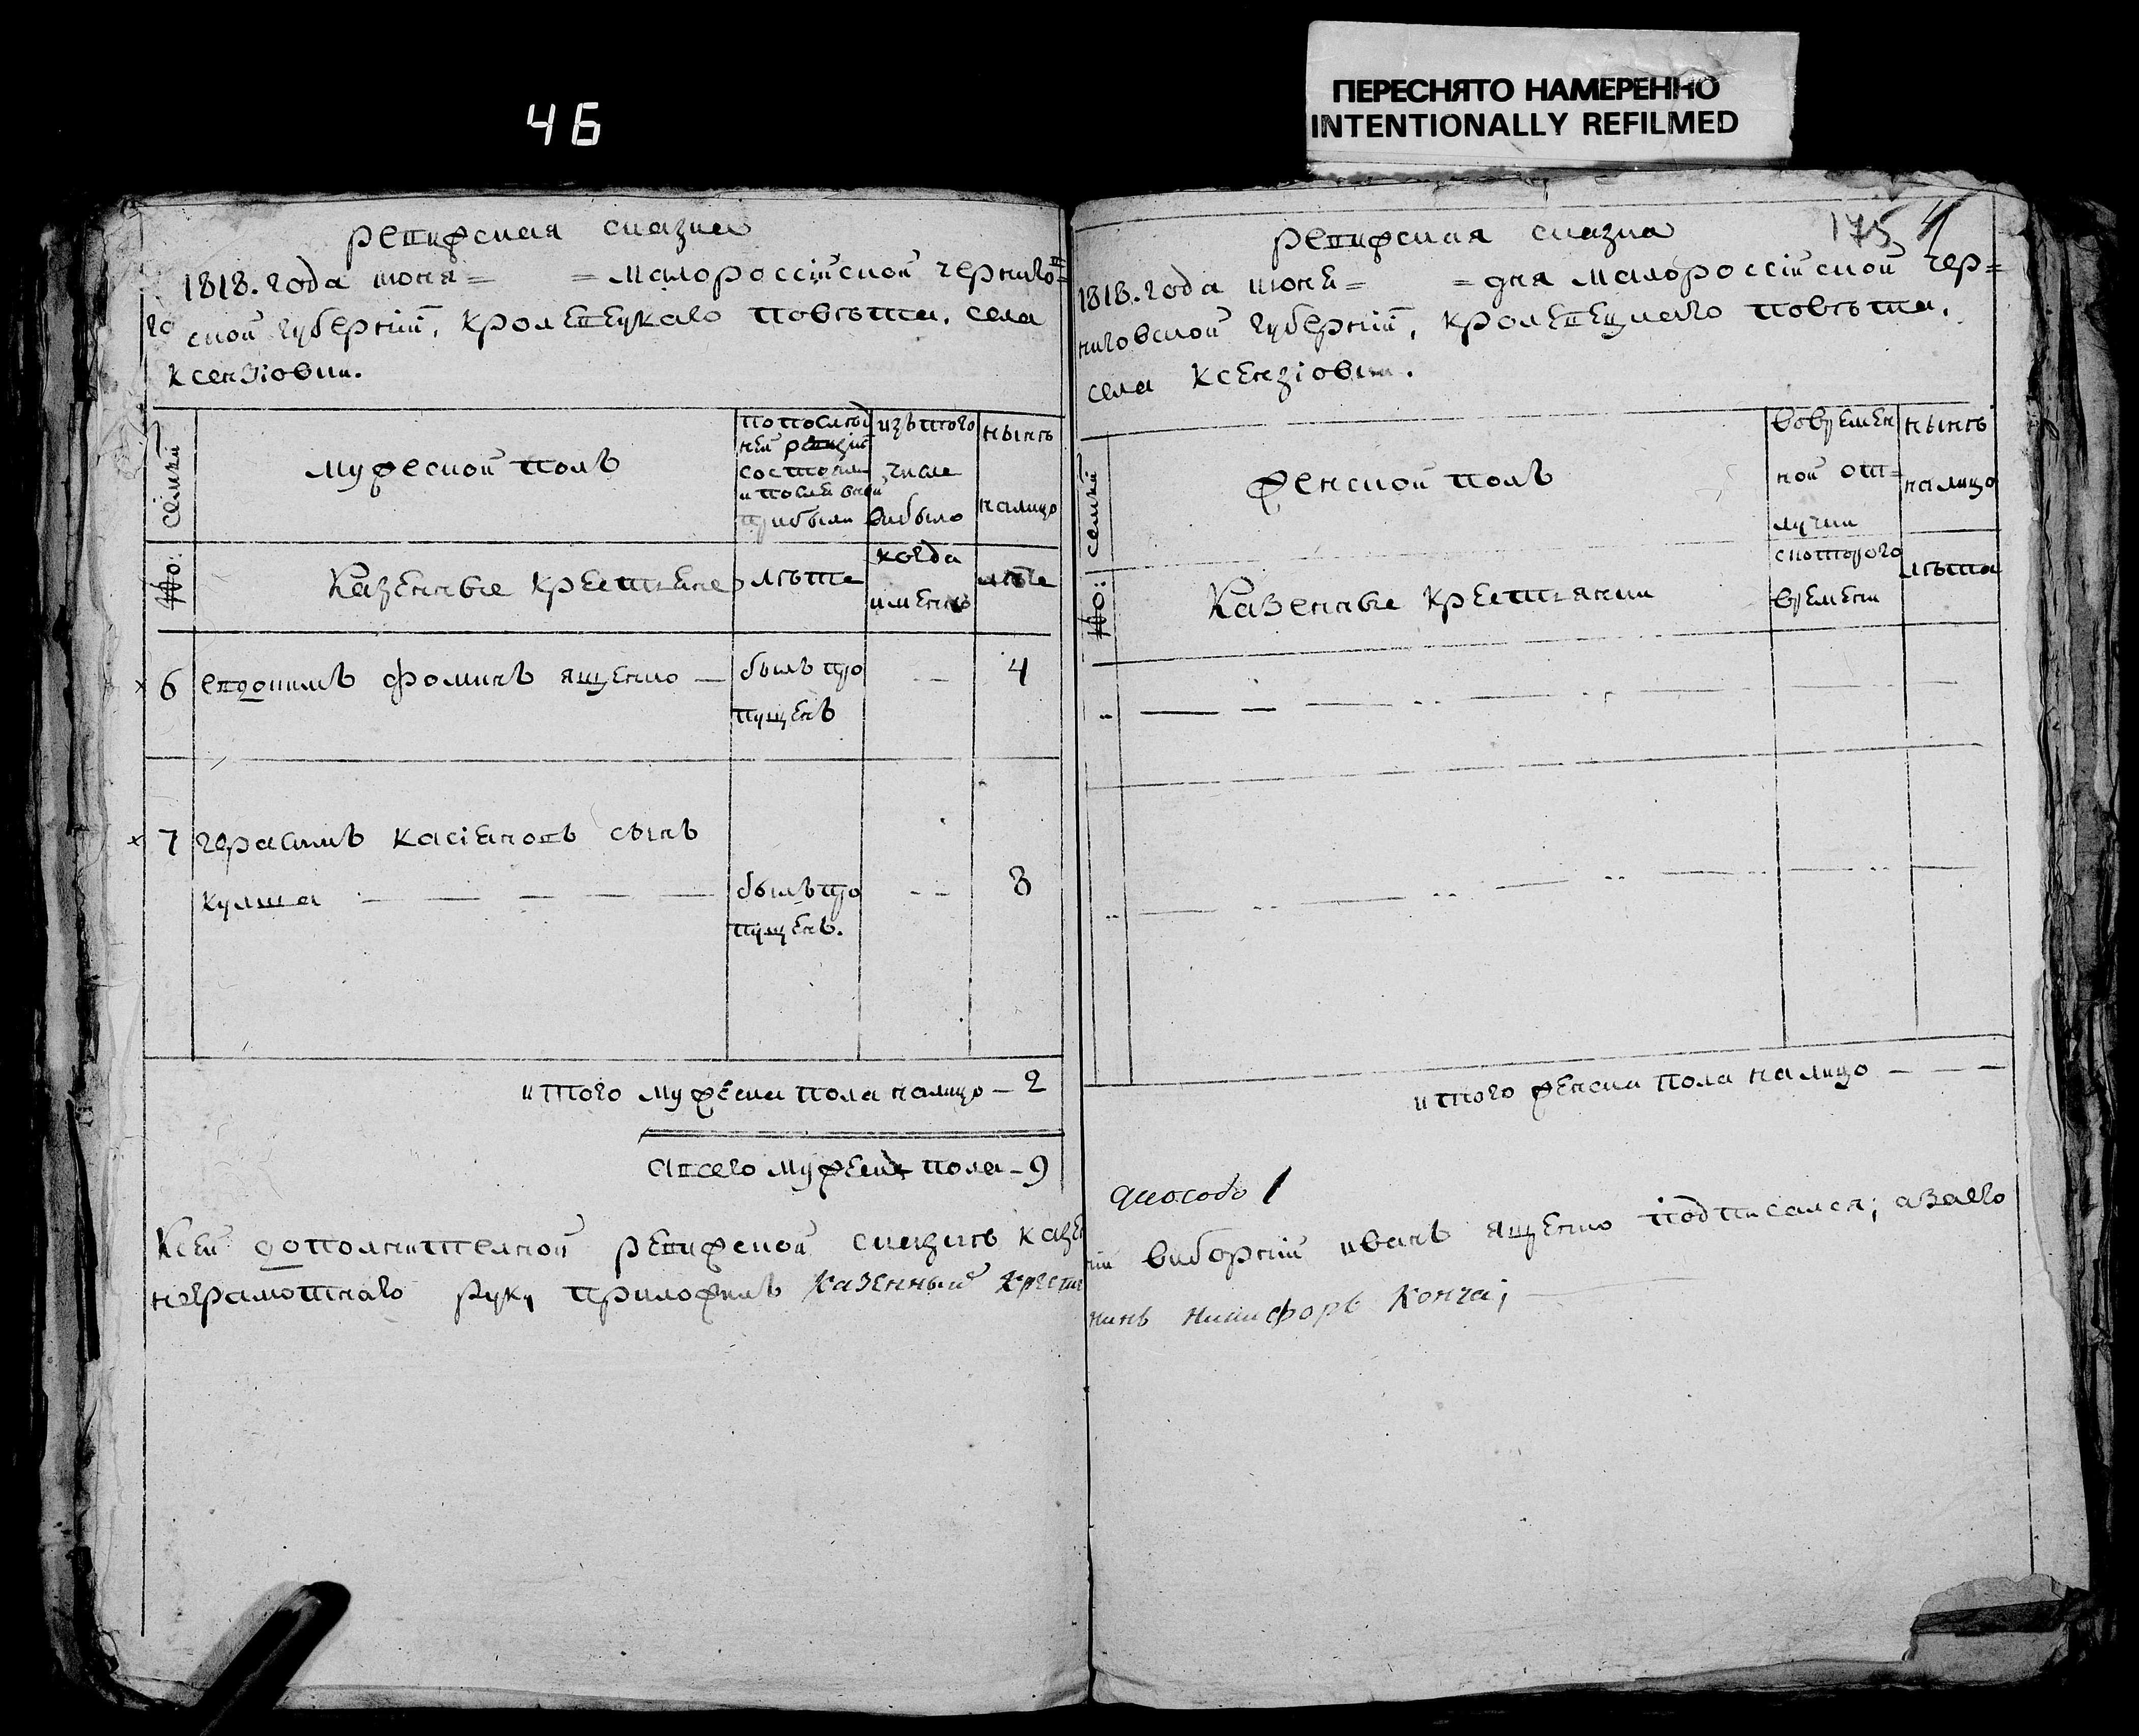 46
ПЕРЕСНЯТО НАМЕРЕННО
INTENTIONALLY REFILMED
ревижская сказка
1818. года июня= = малороссійской черниго=
ской губерніи, кролевецкаго повѣта. села
ксензіовки.
№: семей
мужеской полъ
по послѣд
ней ревизіи
состояли
и после оной
прибыли
изъ того
числа
выбыло
нынѣ
налицо
Казенные крестяне
лѣта
когда
именно
лѣта
6 евдокимъ фоминъ ященко —
былъ про
пущенъ
4
7 герасимъ касіяновъ сынъ
кулша
былъ про
пущенъ.
8
итого мужеска пола налицо — 2
авсего мужеска пола — 9
Ксей дополнителной ревижской сказкѣ казен
неграмотнаго руку приложилъ казенный крестя
175 4
ревижская сказка
1818. года июня= = дня малороссійской чер=
ниговской губерніи, кролевецкаго повѣта,
села ксензіовки.
№: семей
женской полъ
вовремен
ной от=
лучки
нынѣ
налицо
Казенные крестянки
скоторого
времени
лѣта
итого женска пола налицо — — —
ній виборній иванъ ященко подписался; азаего
нинъ никифоръ Конча;